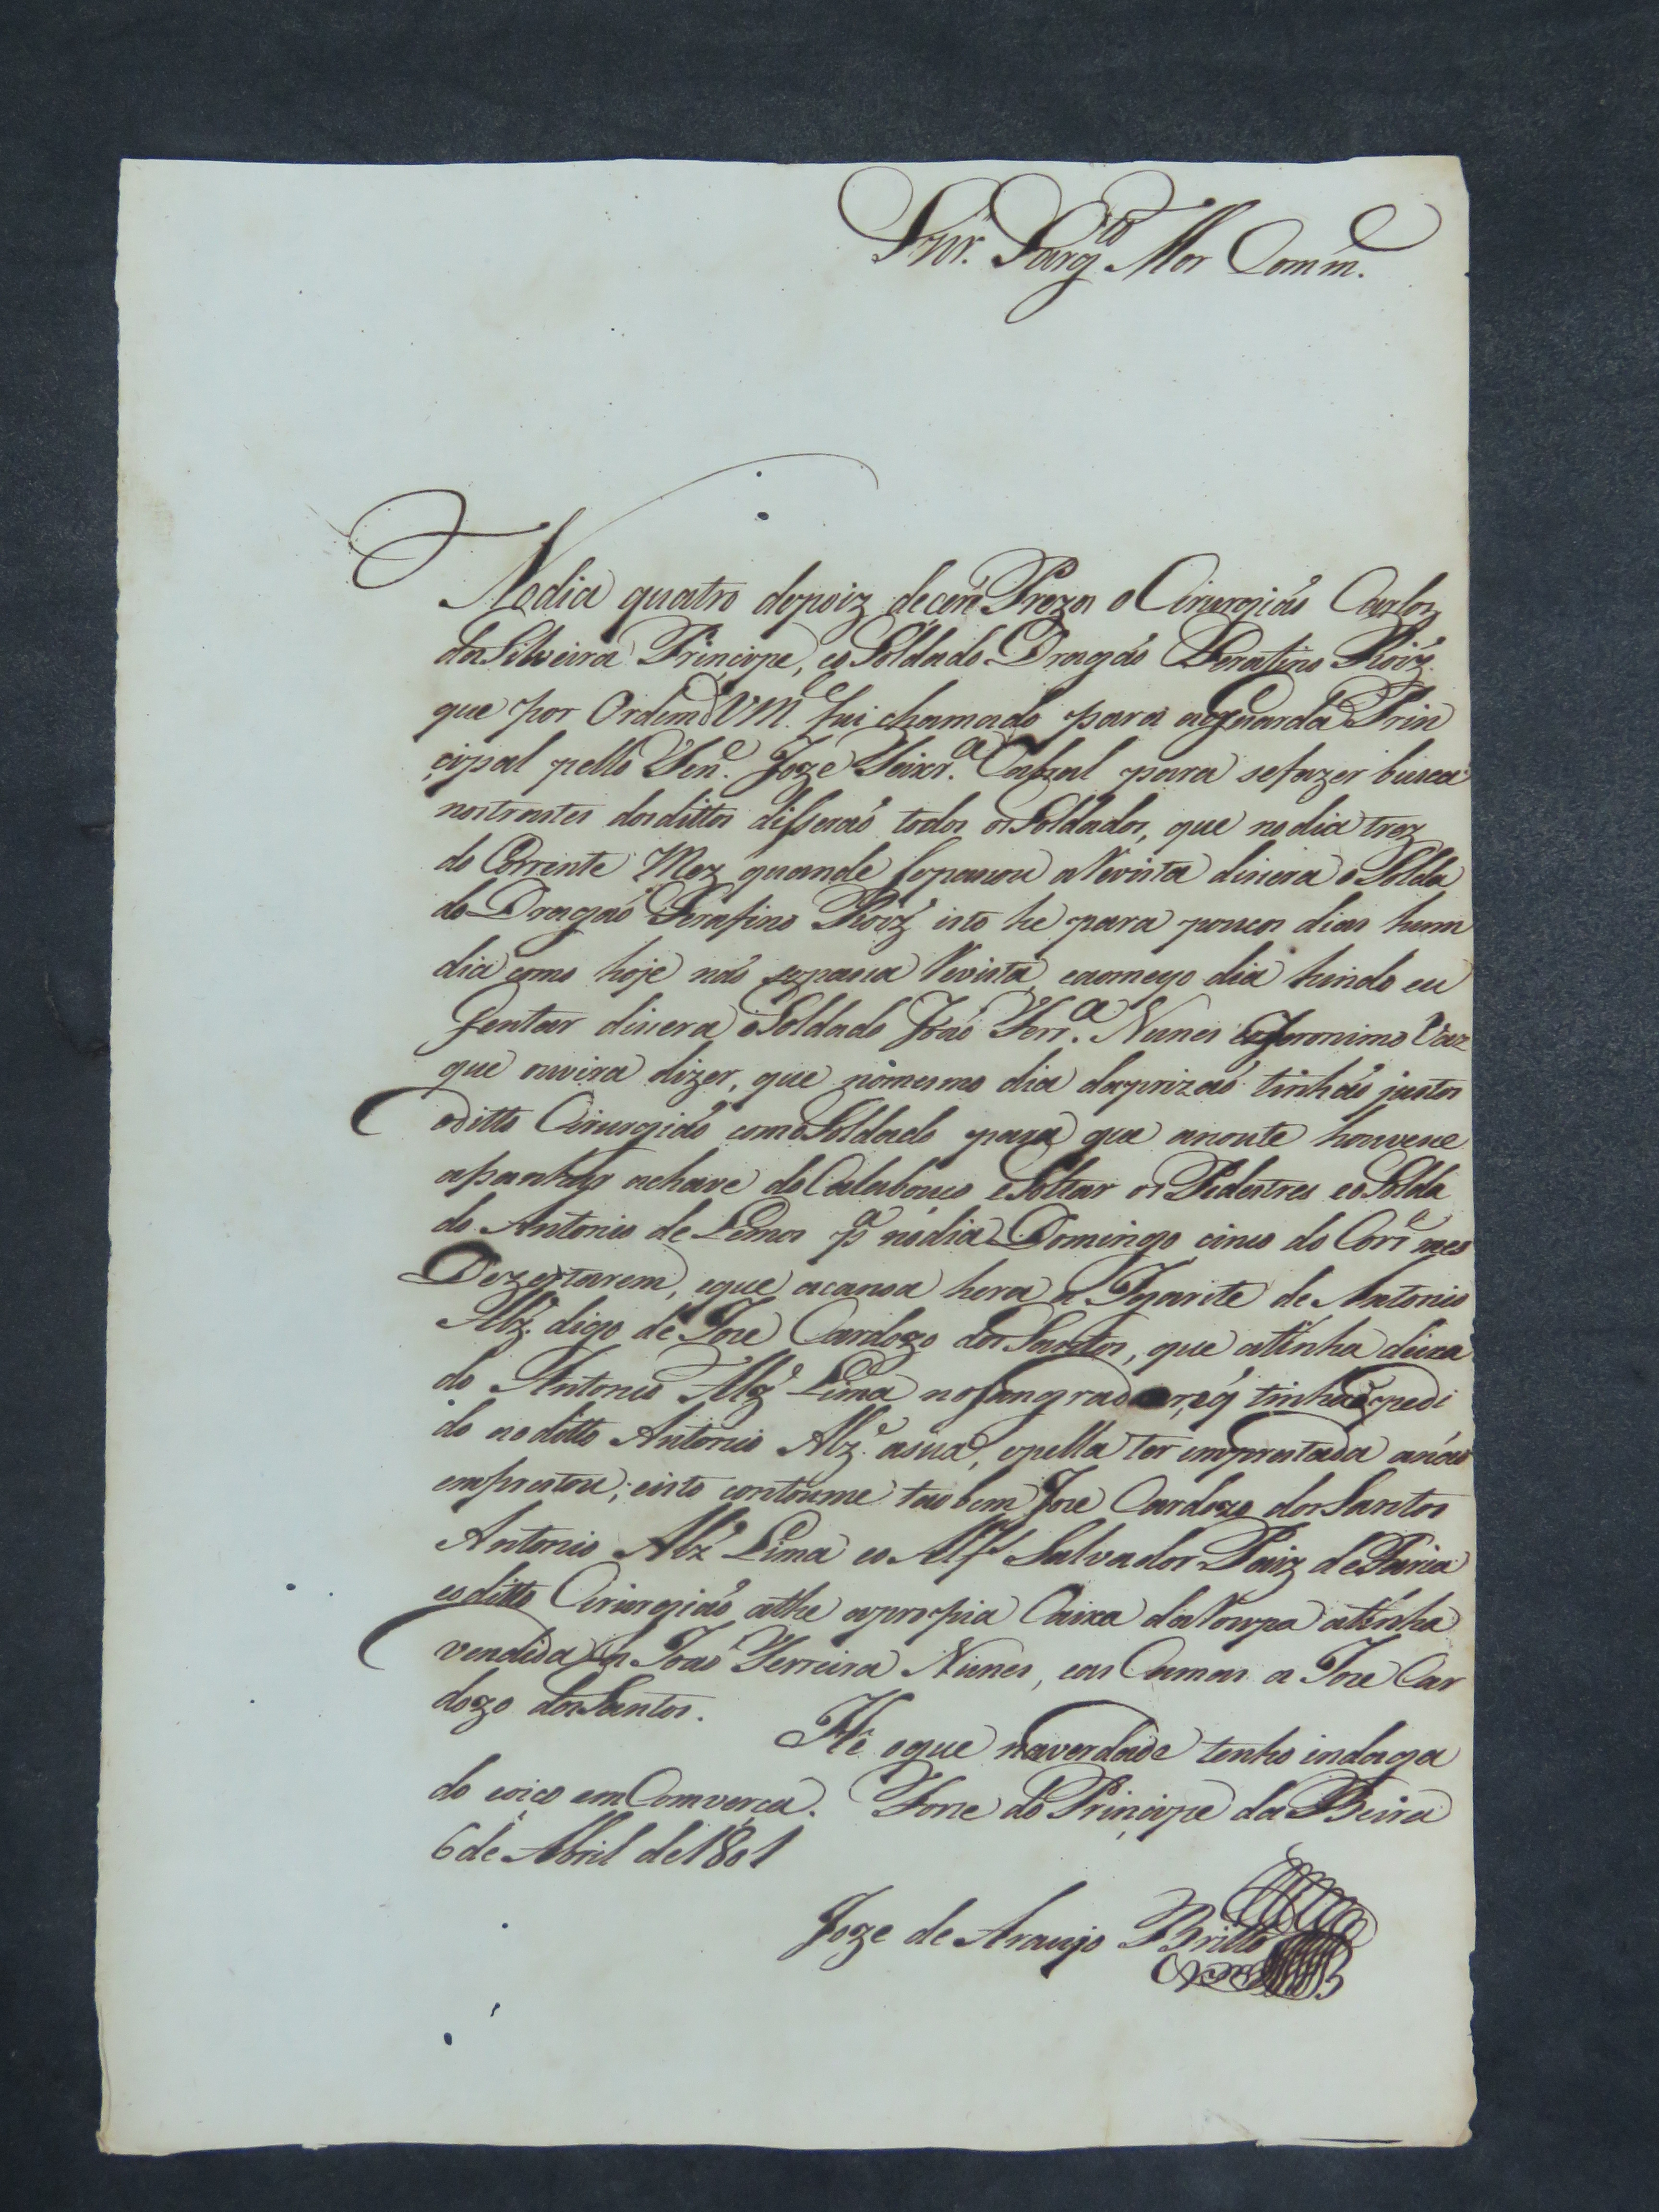 Snr. Sargto Mor Comm.e
No dia quatro depoiz de cer Prezos o Cirurgiaõ Carlos
da Silveira Principe, eo Soldado Dragaõ Serafino Roiz
que por Ordem d VM.ce fui chamado para aguarda Prin
cipal pello Ten.e Joze Teixr.a Cabral para sefazer busca
nos trastes dos dittos disseraõ todos os Soldados, que no dia trez
do Corrente Mez quando sepasou a Revista dicera o Solda
do Dragaõ Serafino Roiz isto he para poucos dias hum
dia como hoje naõ sepasa Revista, eaomeyo dia hindo eu
Jentar dicera o Soldado Joaõ Ferr.a Nunes eo Jeronimo Vaz
que ouvira dizer, que nomesmo dia daprizaõ tinhaõ justos
oditto Cirurgiaõ como Soldado para que anoute houvese
apanhar achave do Calabouço eSoltar os Pedestres eo Solda
do Antonio de Lemos p.a nodia Domingo cinco do Corr.e mes
Dezertarem, eque acanoa hera a Igarite de Antonio
Alz. digo de Joze Cardozo dos Santos, que atinha deixa
do Antonio Alz. Lima no sangrador, eq tinha pedi
do ao ditto Antonio Alz. asua, epella ter emprestada anaõ
emprestou; eisto contoume taobem Joze Cardozo dos Santos
Antonio Alz Lima eo Alfs Salvador Paiz de Faria
eoditto Cirurgiaõ athe apropia Caixa da Roupa atinha
vendida a Joaõ Ferreira Nunes, eas Camas a Joze Car
dozo dos Santos.
He oque naverdade tenho indaga
do eoiço em Comverça. Forte do Principe da Beira
6 de Abril de 1801
Joze de Araujo Britto